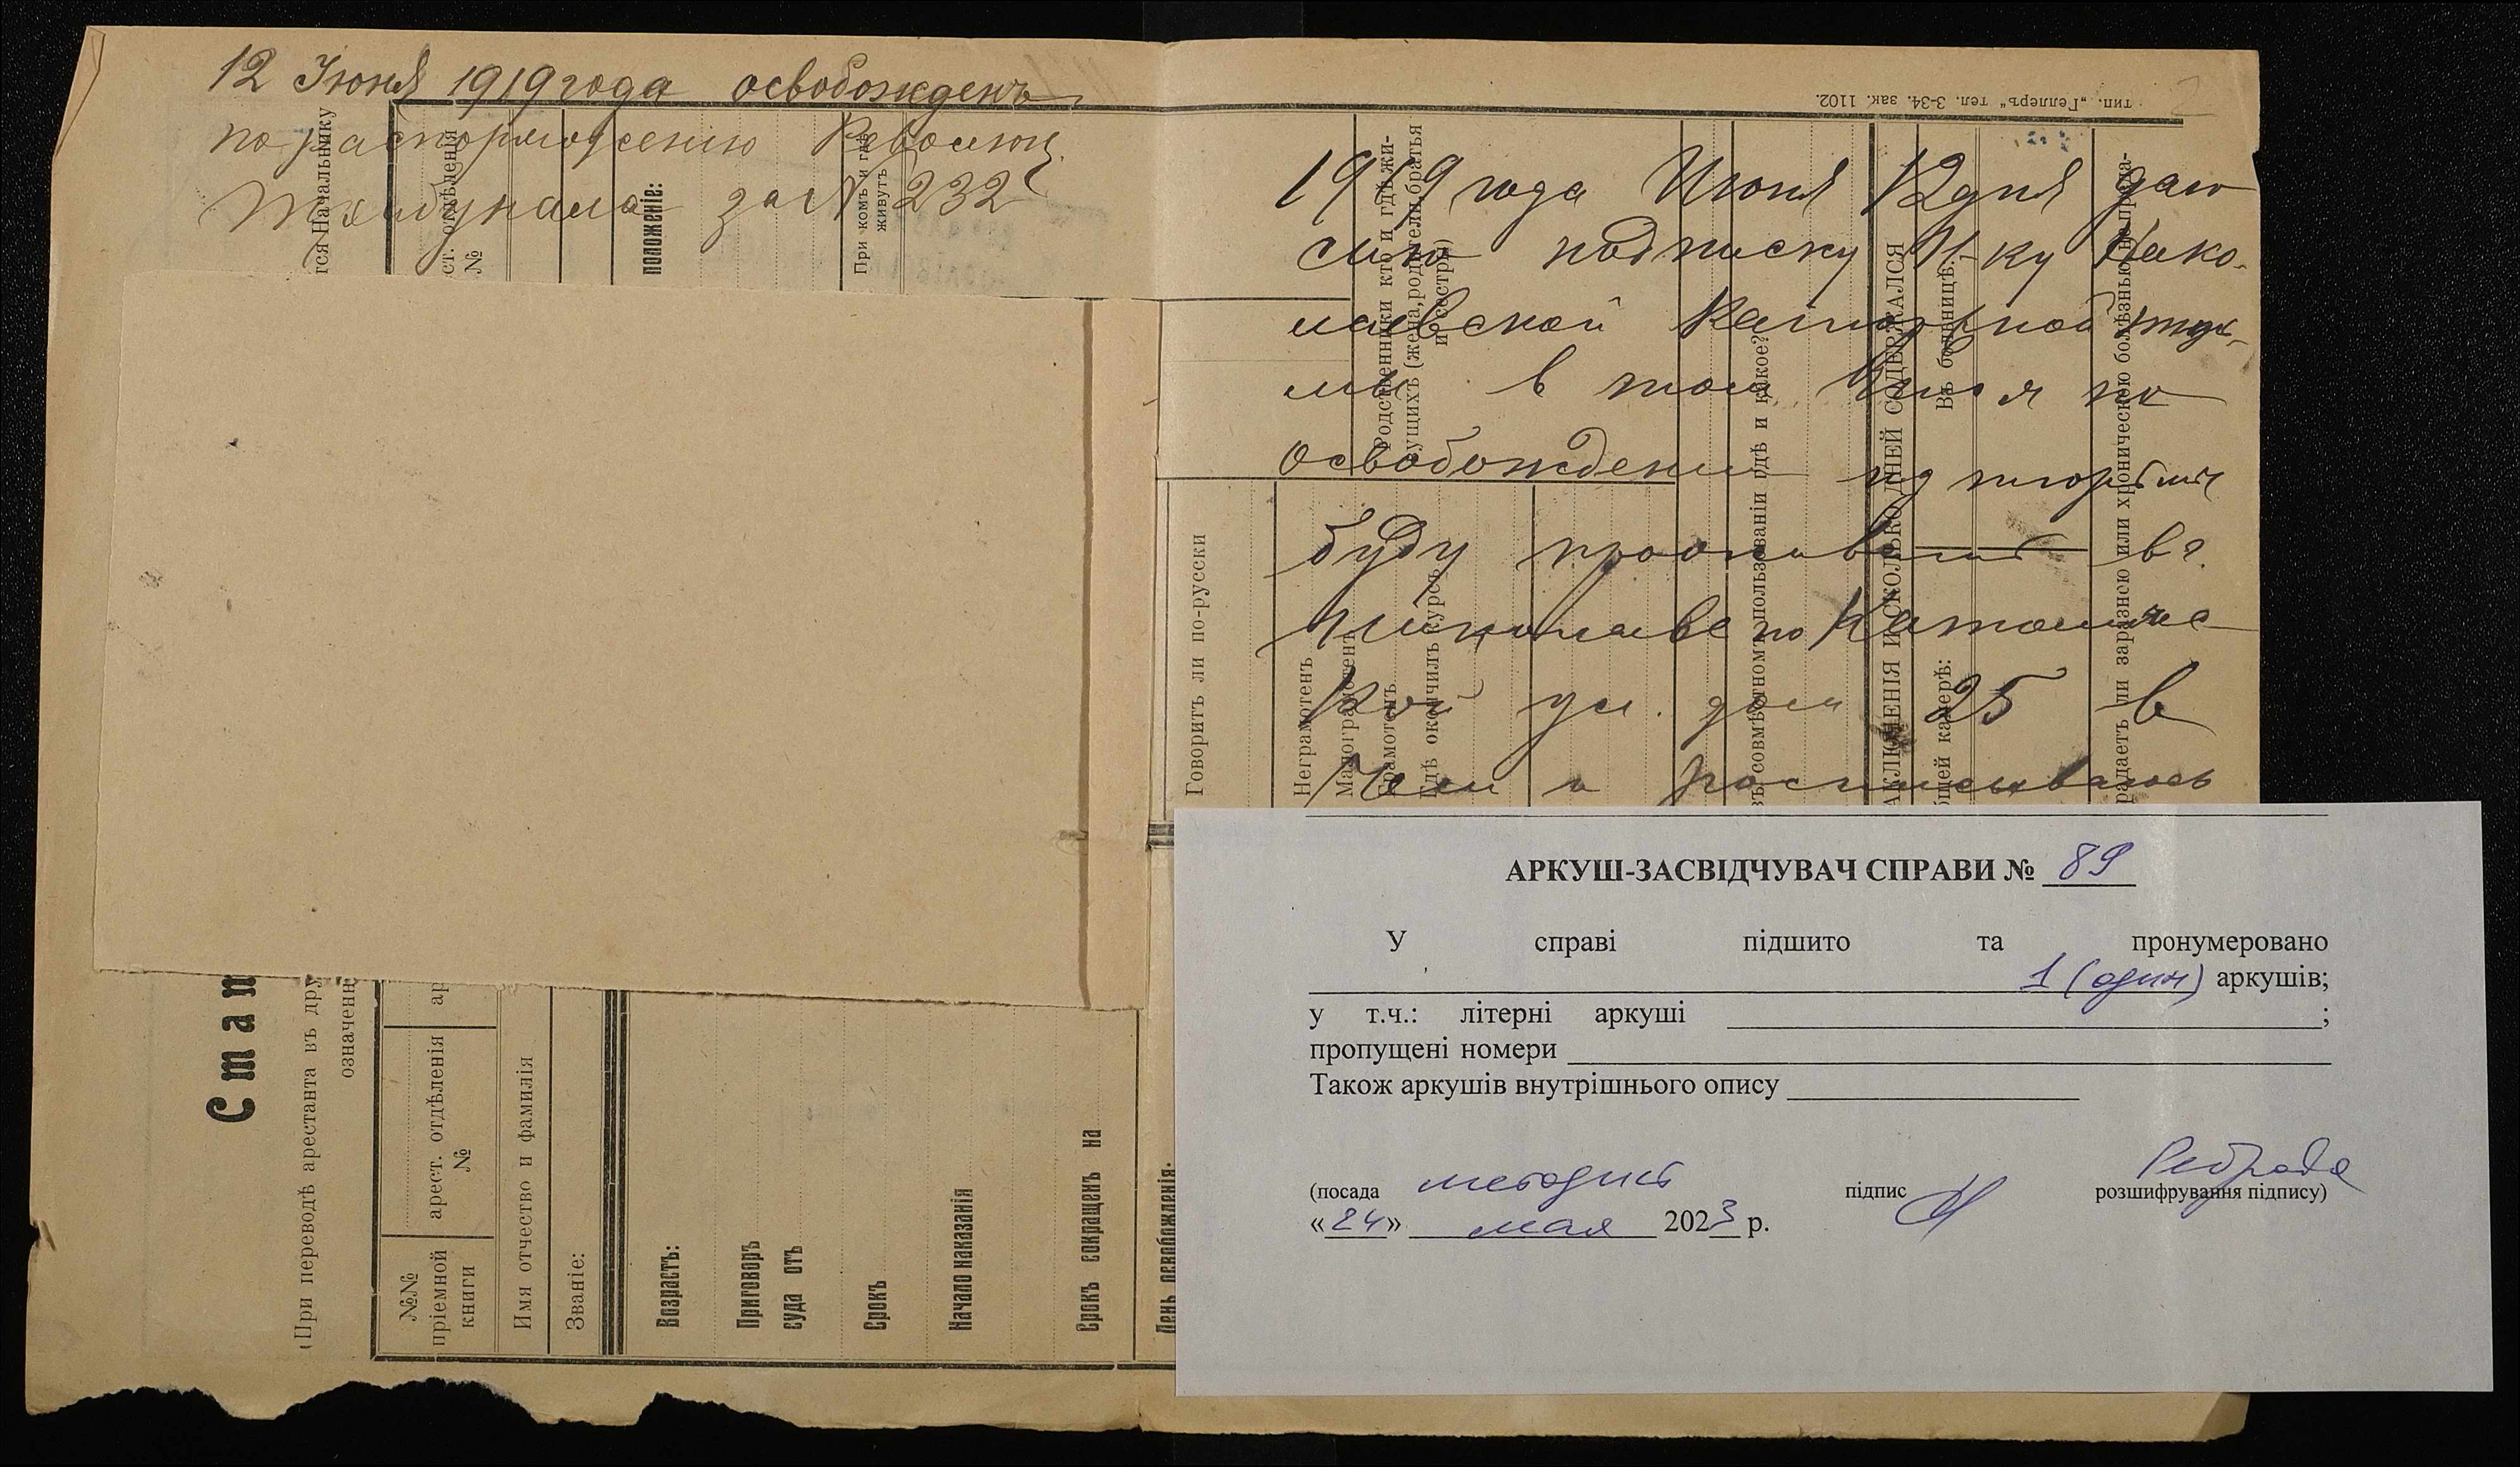 12 Июня 1919 года освобожденъ
по распоряжению Революц.
Трибунала за № 232
тся Начальнику
ст. отдѣленія
№
положеніе:
При комъ и гдѣ
живутъ
тип. „Геллеръ" тел. 3-34. зак. 1102.
2
1919 года Июня 12 дня даю
сию подписку Н-ку Нико-
лаевской Каторжной тюрь-
мы в том что я по
освобождении из тюрьмы
буду проживать в г.
Николаеве по Католиче
ской ул. дом 25 в
чем и росписываюсь
Родственники кто и гдѣ жи-
вущихъ (жена, родители, братья
и сестры)
Говоритъ ли по-русски
Неграмотенъ
Малограмотенъ
Грамотенъ
Гдѣ окончилъ курсъ
въ совмѣстномъ пользованіи гдѣ и какое?
АКЛЮЧЕНІЯ И СКОЛЬКО ДНЕЙ СОДЕРЖАЛСЯ
Въ больницѣ.
бщей камерѣ:
радаетъ ли заразною или хроническою болѣзнью
Стат
(При переводѣ арестанта въ дру
означенн
№№
пріемной
книги
арест. отдѣленія
№
ар
Имя отчество и фамилія
Званіе:
Возрастъ:
Приговоръ
суда отъ
Срокъ
Начало наказанія
Срокъ сокращенъ на
День освобожденія.
АРКУШ-ЗАСВІДЧУВАЧ СПРАВИ № 89
У справі підшито та пронумеровано
1 (один) аркушів;
у т.ч.: літерні аркуші ;
пропущені номери
Також аркушів внутрішнього опису
(посада методист підпис розшифрування підпису)
«24» мая 2023 р.